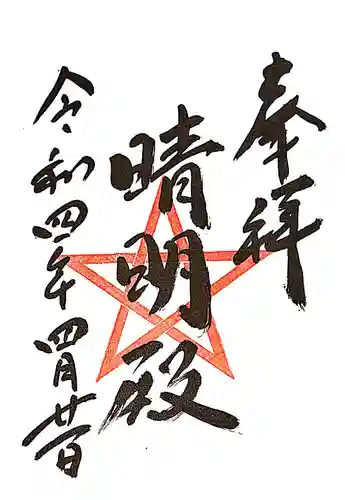 奉拝
晴明殿
令和四年四月廿日